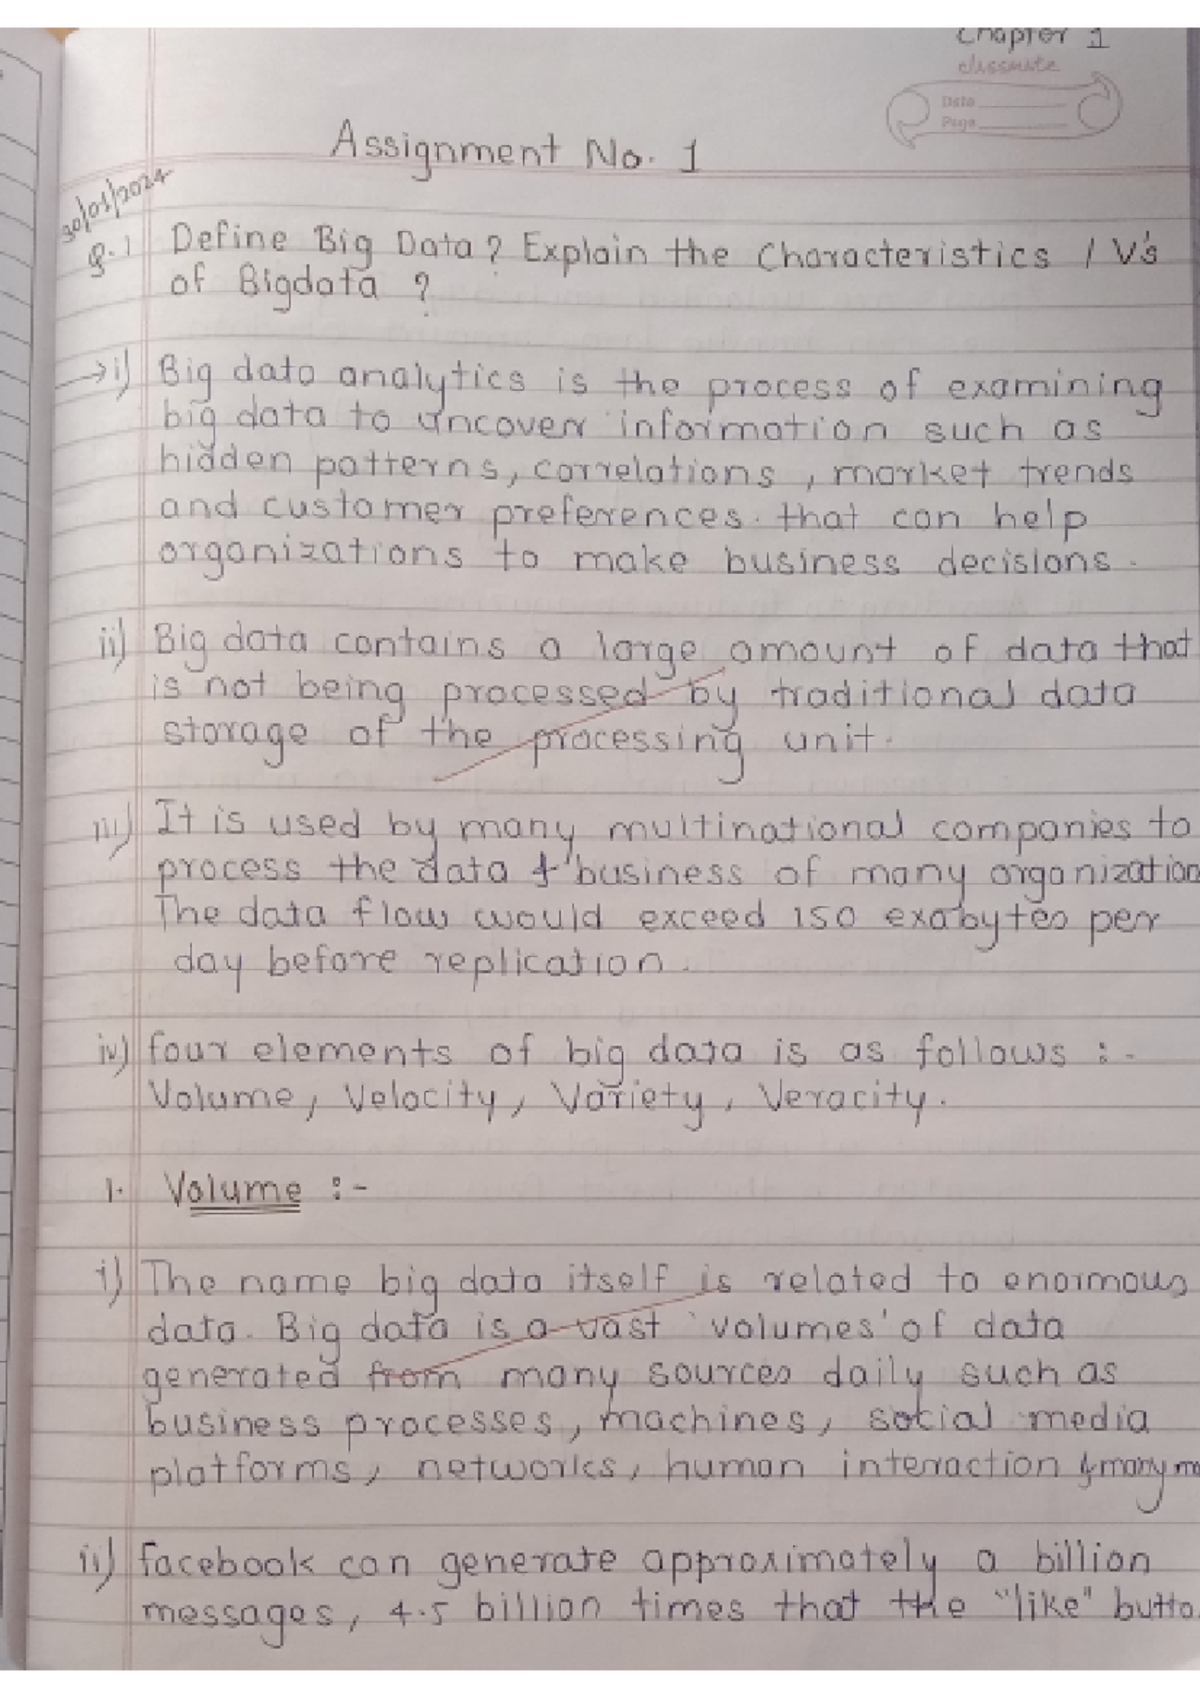 Chapter 1
classmate
Date
Page
Assignment No. 1
30/01/2024
Q.1 Define Big Data? Explain the Characteristics / V's
of Bigdata ?
→i) Big data analytics is the process of examining
big data to uncover information such as
hidden patterns, correlations, market trends
and customer preferences. that can help
organizations to make business decisions.
ii) Big data contains a large amount of data that
is not being processed by traditional data
storage of the processing unit.
iii) It is used by many multinational companies to
process the data & business of many organization
The data flow would exceed 150 exabytes per
day before replication.
iv) four elements of big data is as follows :-
Volume, Velocity, Variety, Veracity.
1. Volume :-
i) The name big data itself is related to enormous
data. Big data is a vast 'volumes' of data
generated from many sources daily such as
business processes, machines, social media
platforms, networks, human interaction & many mo
ii) facebook can generate approximately a billion
messages, 4.5 billion times that the "like" butto